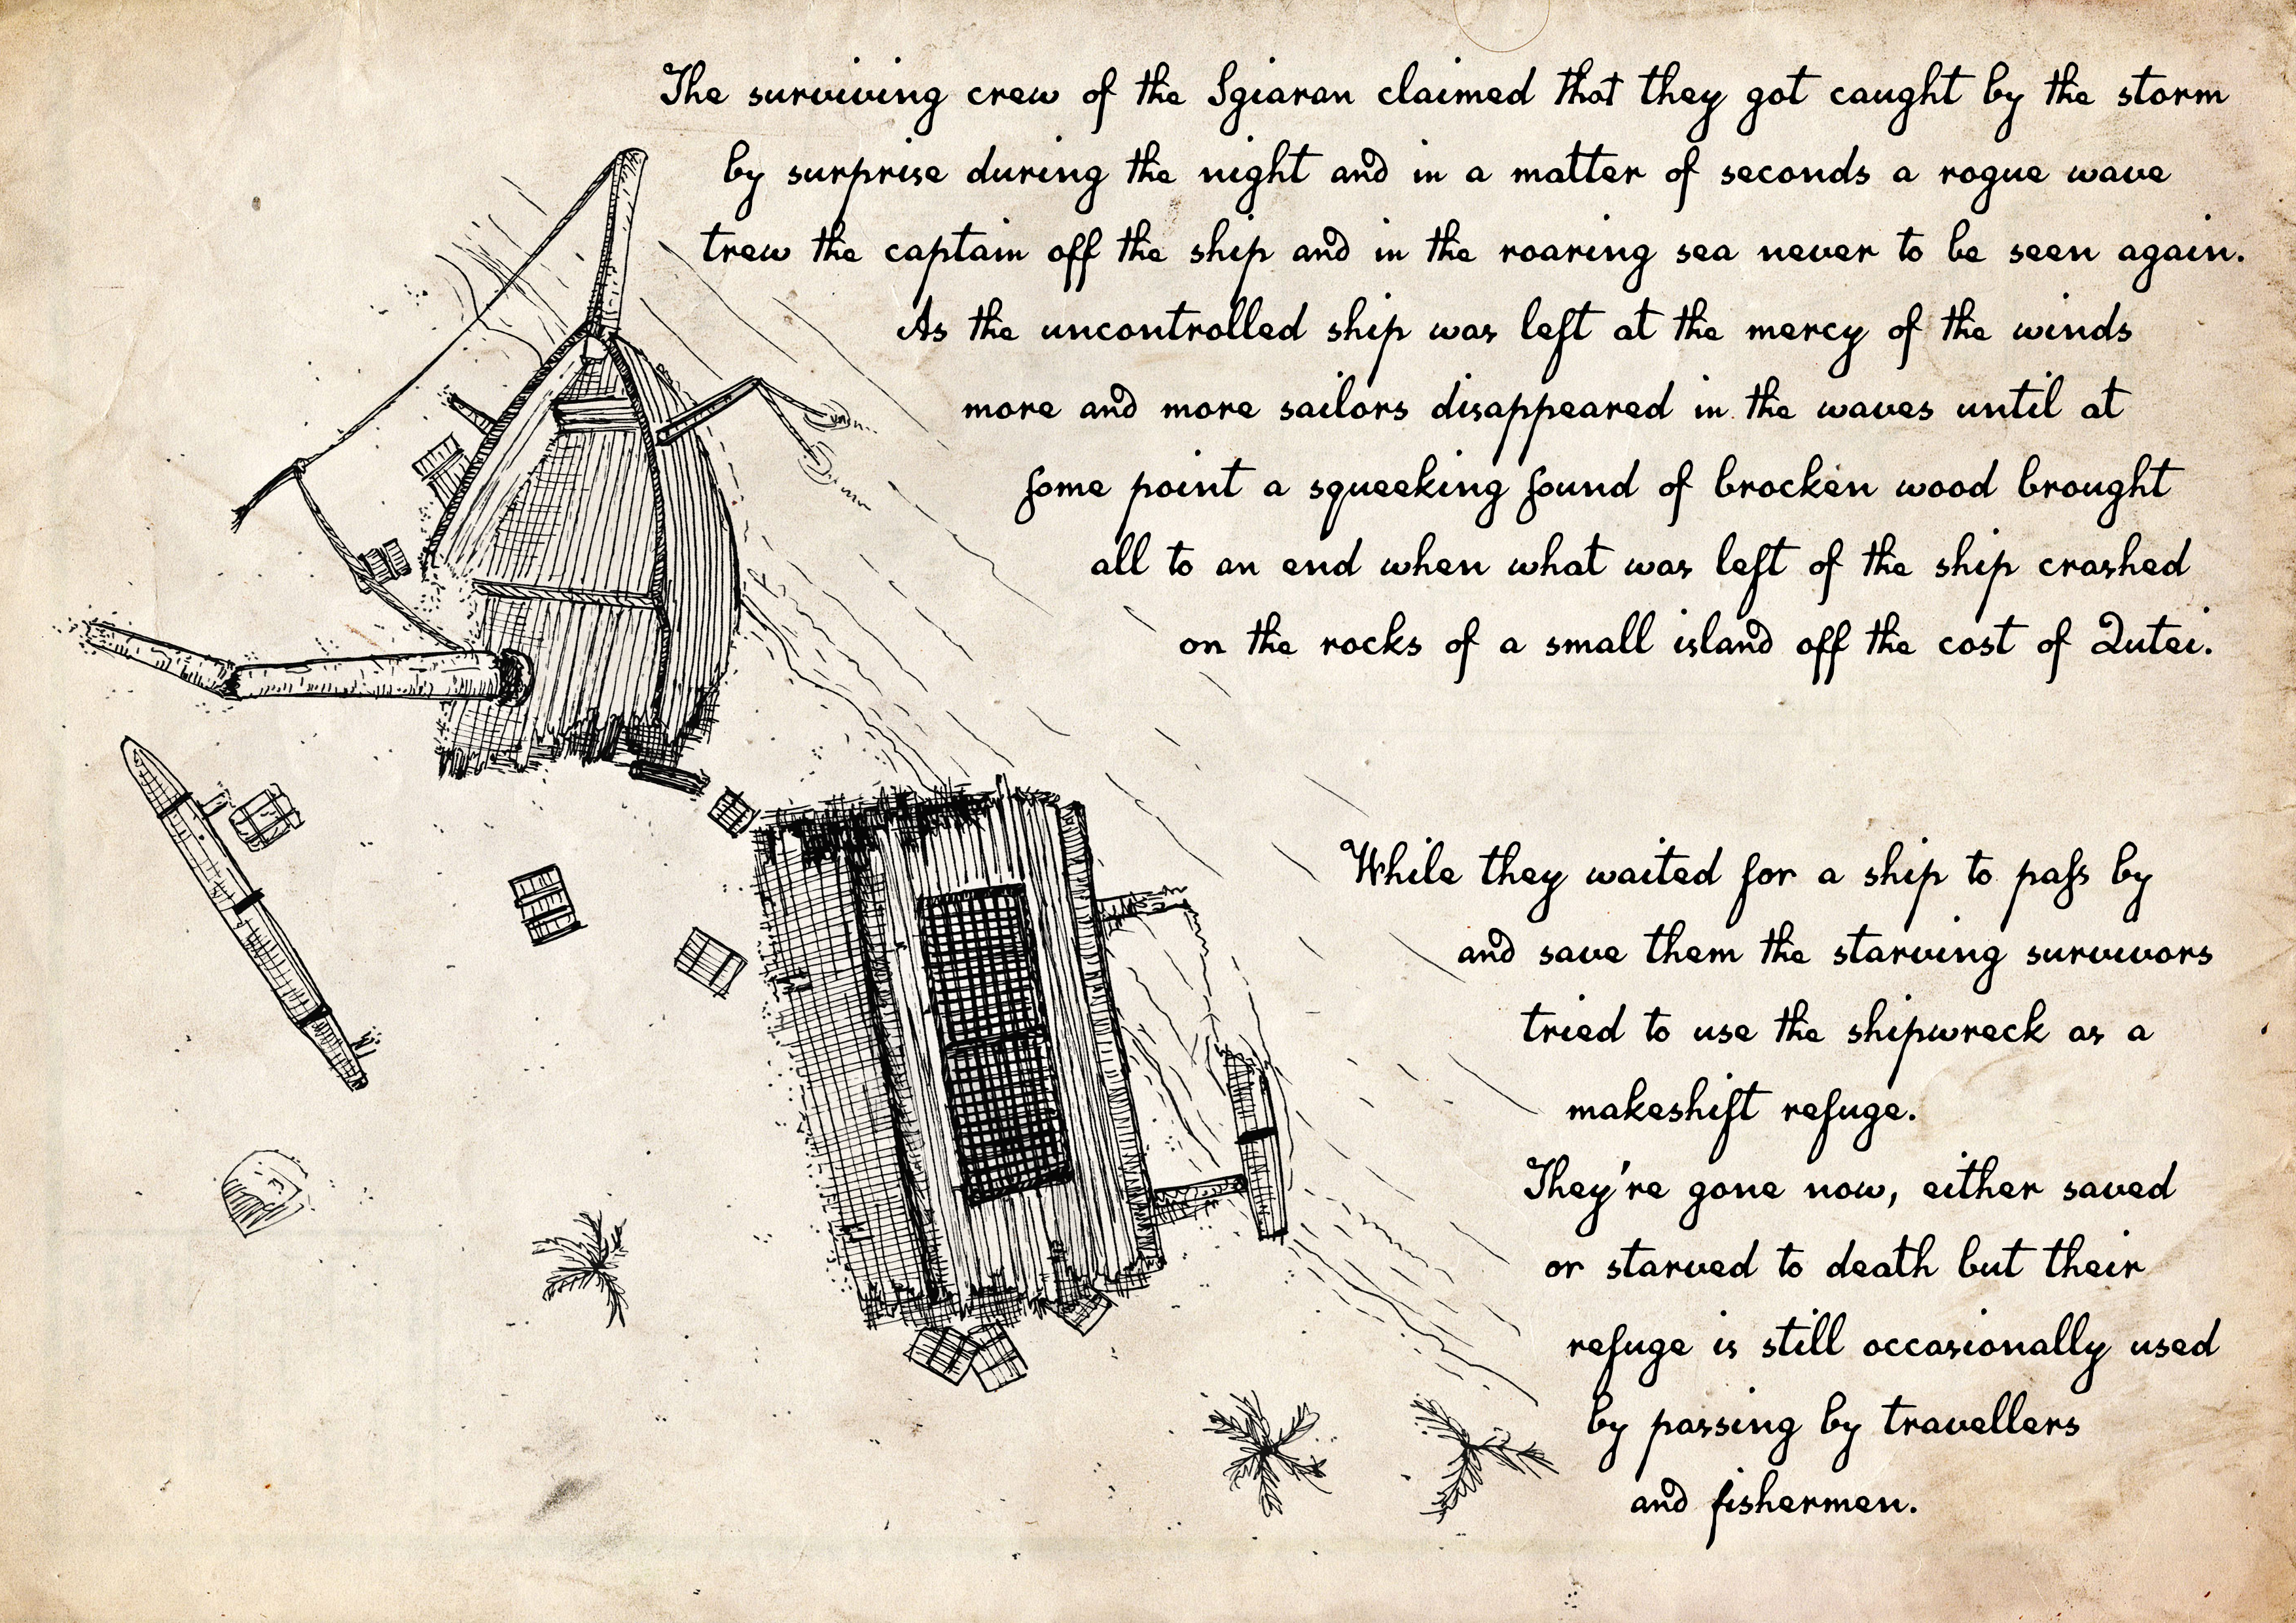 The surviving crew of the Sgiaran claimed that they got caught by the storm
by surprise during the night and in a matter of seconds a rogue wave
trew the captain off the ship and in the roaring sea never to be seen again.
As the uncontrolled ship was left at the mercy of the winds
more and more sailors disappeared in the waves until at
some point a squeeking sound of brocken wood brought
all to an end when what was left of the ship crashed
on the rocks of a small island off the cost of Qutei.
While they waited for a ship to pass by
and save them the starving survivors
tried to use the shipwreck as a
makeshift refuge.
They're gone now, either saved
or starved to death but their
refuge is still occasionally used
by passing by travellers
and fishermen.